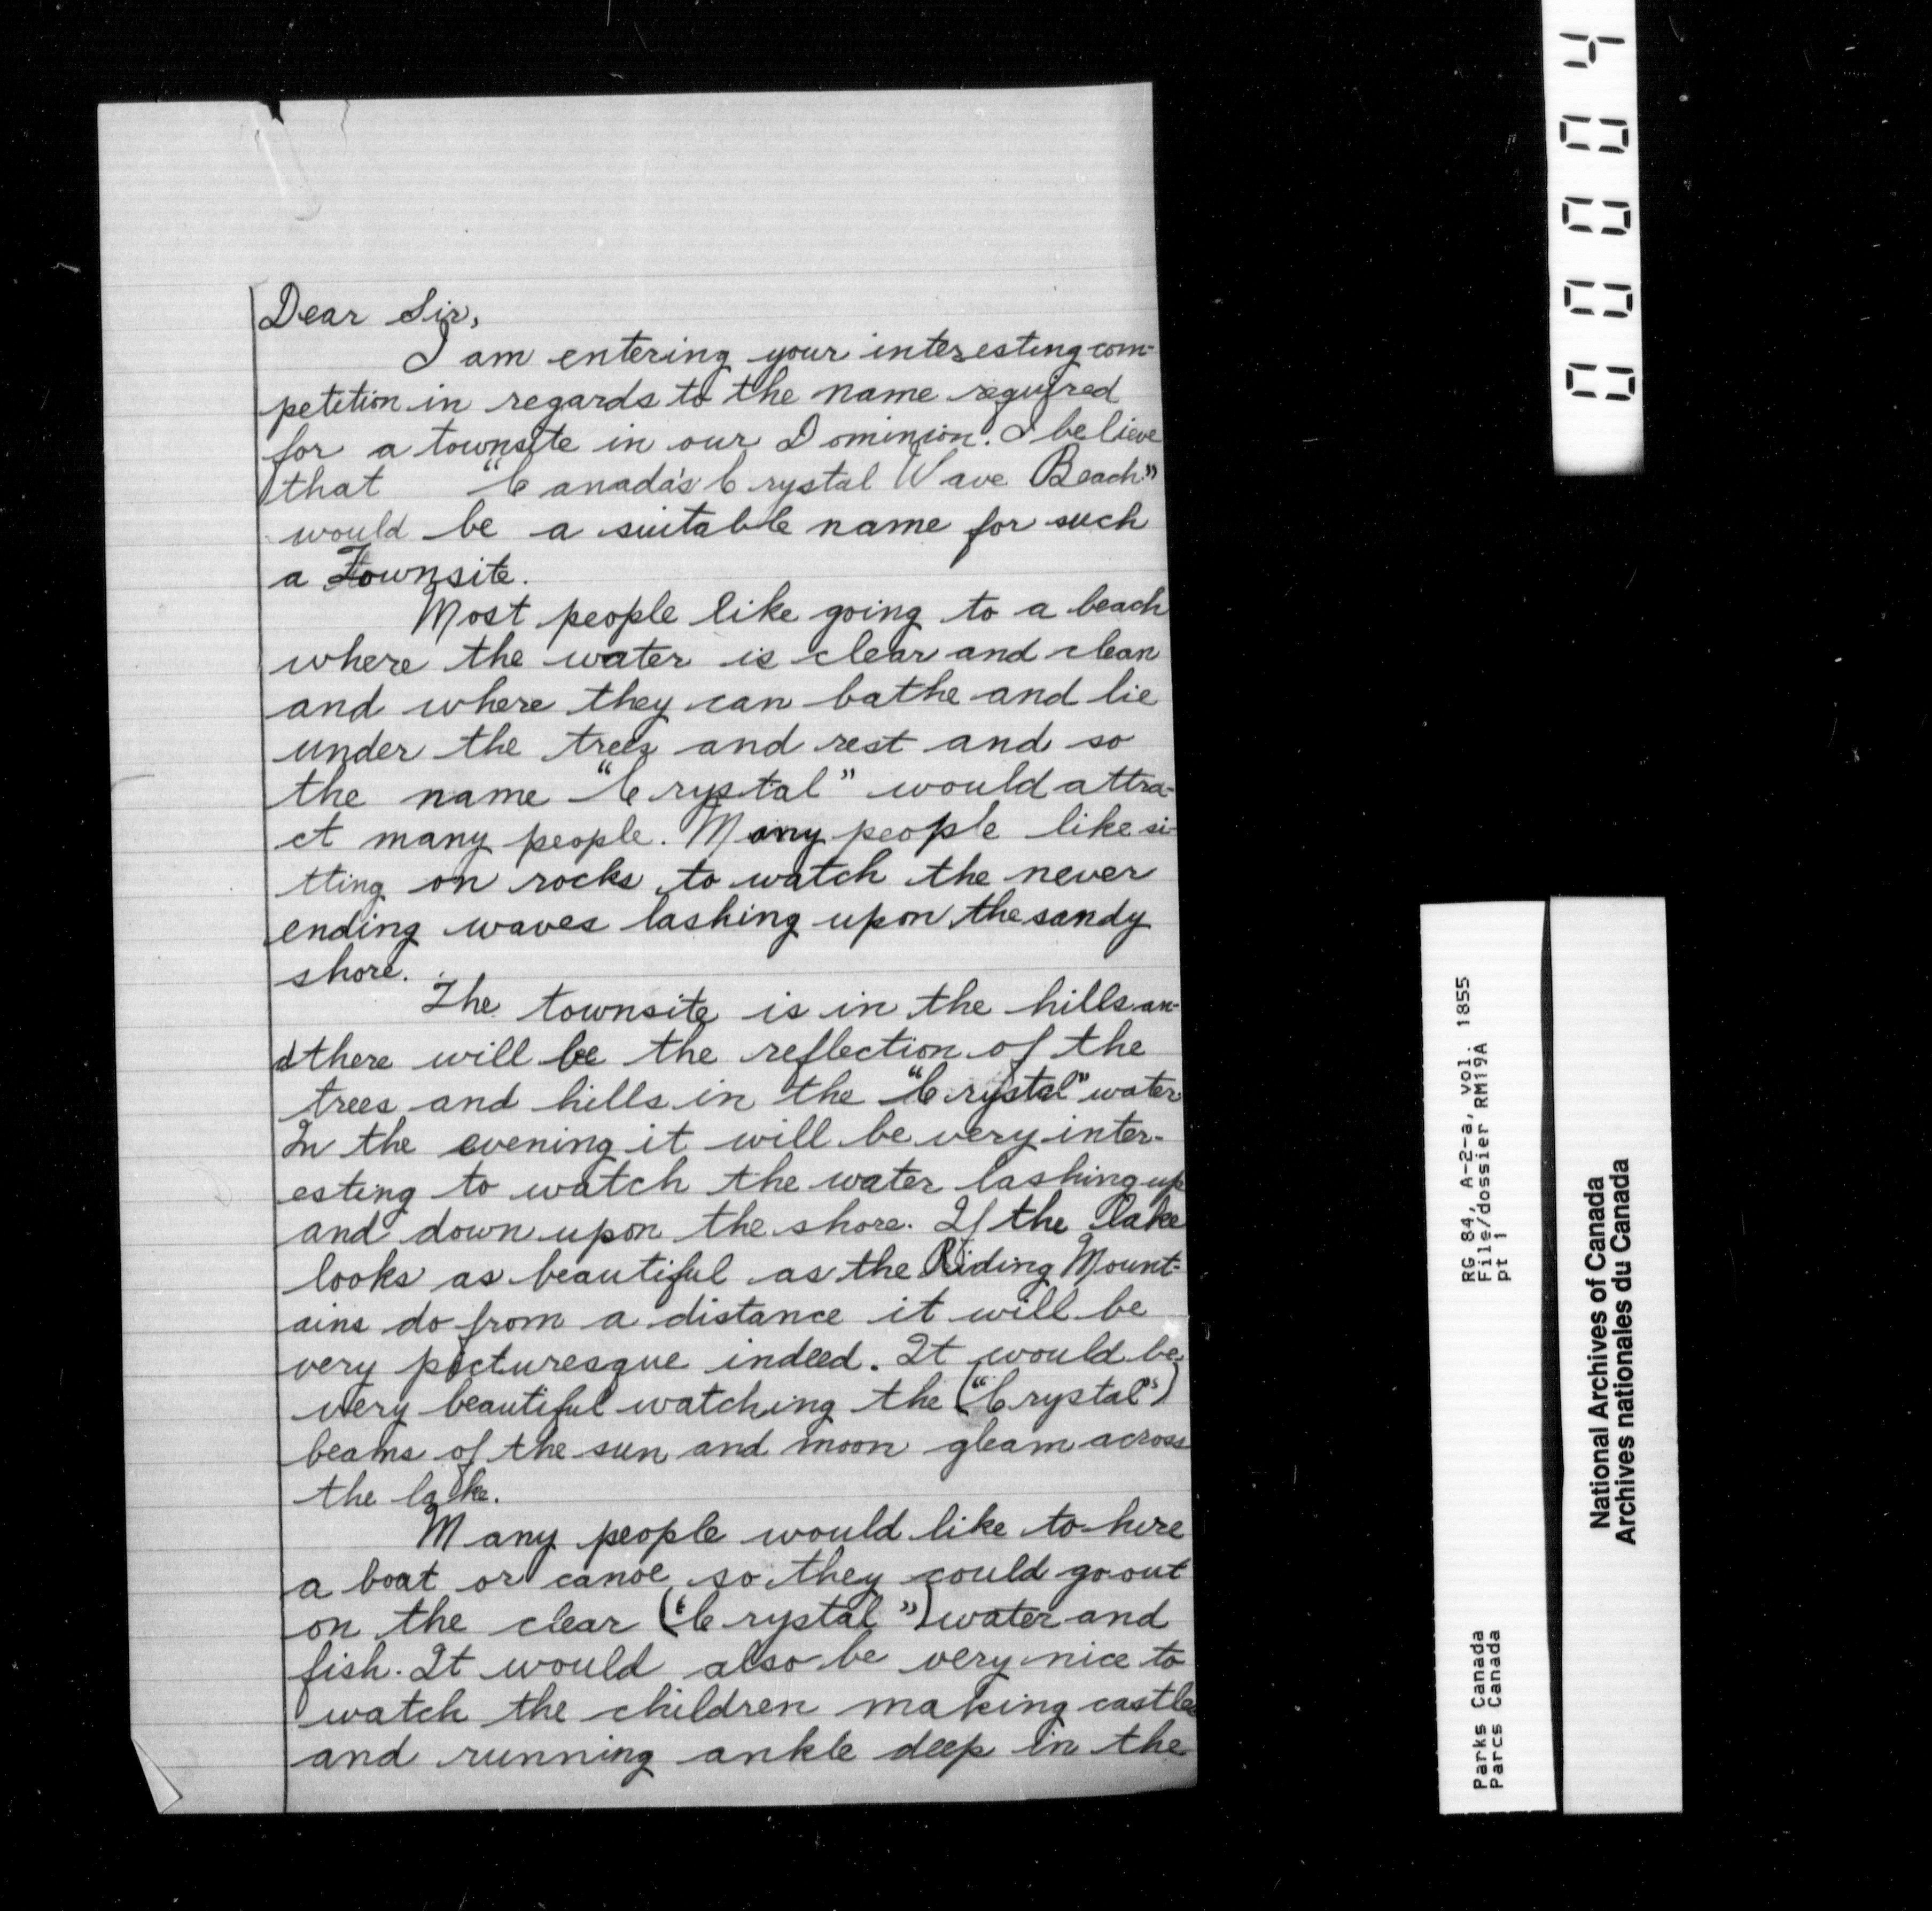 Dear Sir,
I am entering your interesting com-
petition in regards to the name required
for a townsite in our Dominion. I believe
that "Canada's Crystal Wave Beach"
would be a suitable name for such
a Townsite.
Most people like going to a beach
where the water is clear and clean
and where they can bathe and lie
under the trees and rest and so
the name "Crystal" would attra-
ct many people. Many people like si-
tting on rocks to watch the never
ending waves lashing upon the sandy
shore.
The townsite is in the hills an-
d there will be the reflection of the
trees and hills in the "Crystal" water
In the evening it will be very inter-
esting to watch the water lashing up
and down upon the shore. If the lake
looks as beautiful as the Riding Mount-
ains do from a distance it will be
very picturesque indeed. It would be
very beautiful watching the ("Crystal")
beams of the sun and moon gleam across
the lake.
Many people would like to hire
a boat or canoe so they could go out
on the clear ("Crystal") water and
fish. It would also be very nice to
watch the children making castles
and running ankle deep in the
00004
RG 84, A-2-a, vol. 1855
File/dossier RM19A
pt 1
Parks Canada
Parcs Canada
National Archives of Canada
Archives nationales du Canada